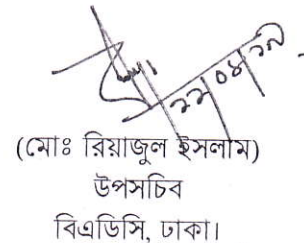 (মোঃ রিয়াজুল ইসলাম)
উপসচিব
বিএডিসি, ঢাকা।